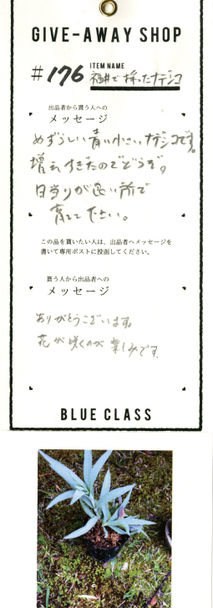 GIVE-AWAY SHOP
#176
ITEM NAME
福井で採ったナデシコ
出品者から買う人への
メッセージ
めずらしい青い小さいナデシコです。
増えすぎたのでどうぞ。
日当りが良い所で
育てて下さい。
この品を買いたい人は、出品者へメッセージを
書いて専用ポストに投函してください。
買う人から出品者への
メッセージ
ありがとうございます。
花が咲くのが楽しみです
BLUE CLASS